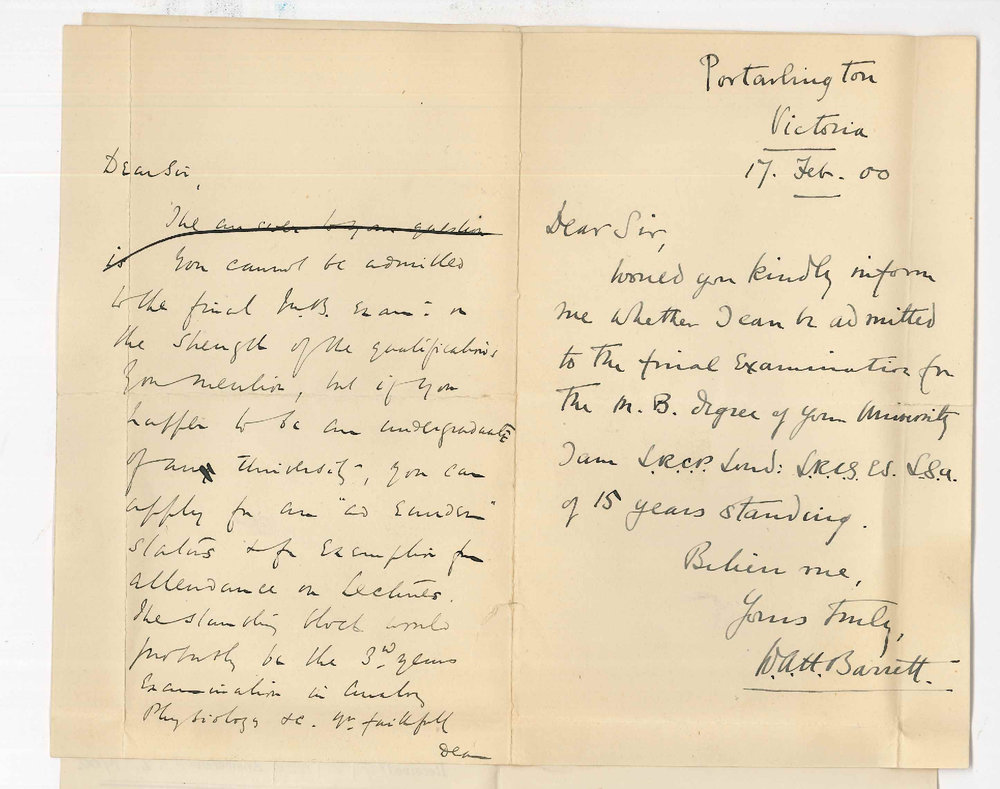 Dear Sir,
The answer to your question
is You cannot be admitted
to the final M.B. Exam: on
the strength of the qualifications
you mention, but if you
happen to be an undergraduate
of any University, you can
apply for an "ad Eundem"
status & for Exemption from
attendance on Lectures.
The stumbling block would
probably be the 3rd years
Examination in Anatomy
Physiology &c. Yrs faithfull
Dean
Portarlington
Victoria
17. Feb. 00
Dear Sir,
Would you kindly inform
me whether I can be admitted
to the final Examination for
the M.B. degree of your University
I am L.R.C.P. Lond: L.R.C.S. Ed. L.S.A.
of 15 years standing.
Believe me,
Yours truly,
Barrett.